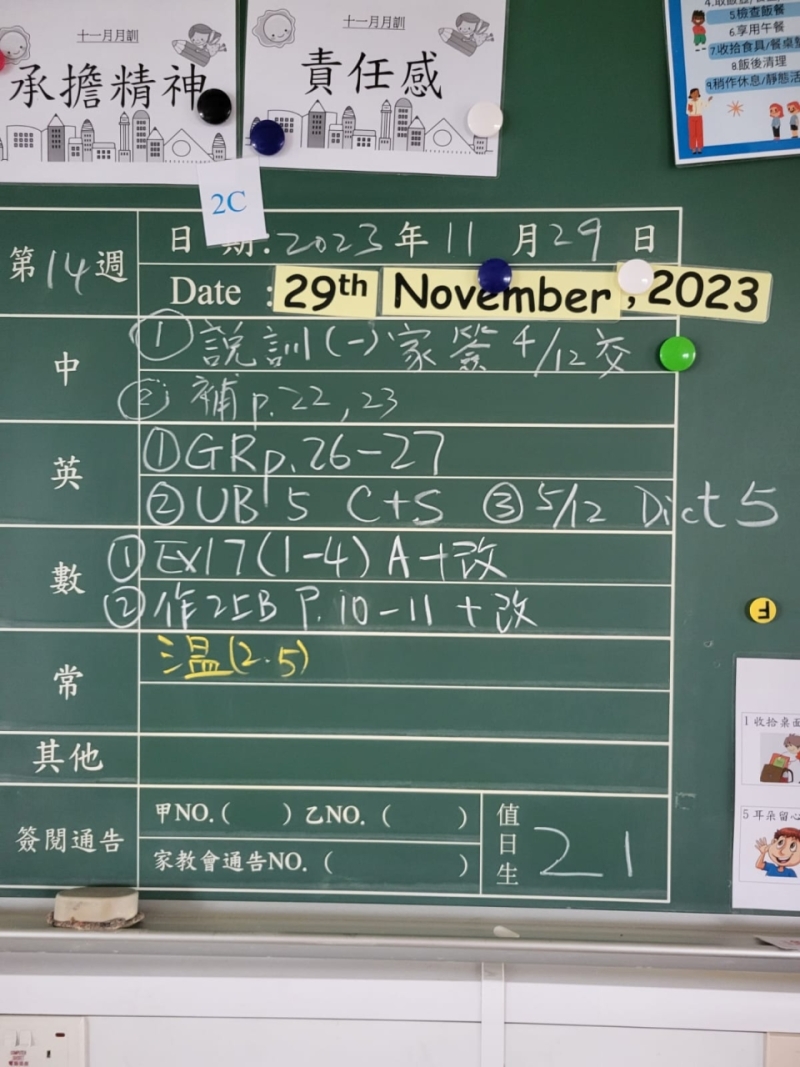 十一月月訓
承擔精神
十一月月訓
責任感
5.檢查飯餐
6.享用午餐
7.收拾食具/餐桌
8.飯後清理
9.稍作休息/靜態活
2C
第14週
日期:2023年11月29日
Date : 29th November, 2023
中
① 說訓(一)家簽 4/12交
② 補p.22,23
英
①GRp.26-27
②UB 5 C+S ③5/12 Dict 5
數
①Ex17(1-4) A+改
②作2上B P.10-11+改
常
溫(2.5)
其他
簽閱通告
甲NO.( ) 乙NO.( )
家教會通告NO.( )
值日生
21
F
1 收拾桌面
5 耳朵留心